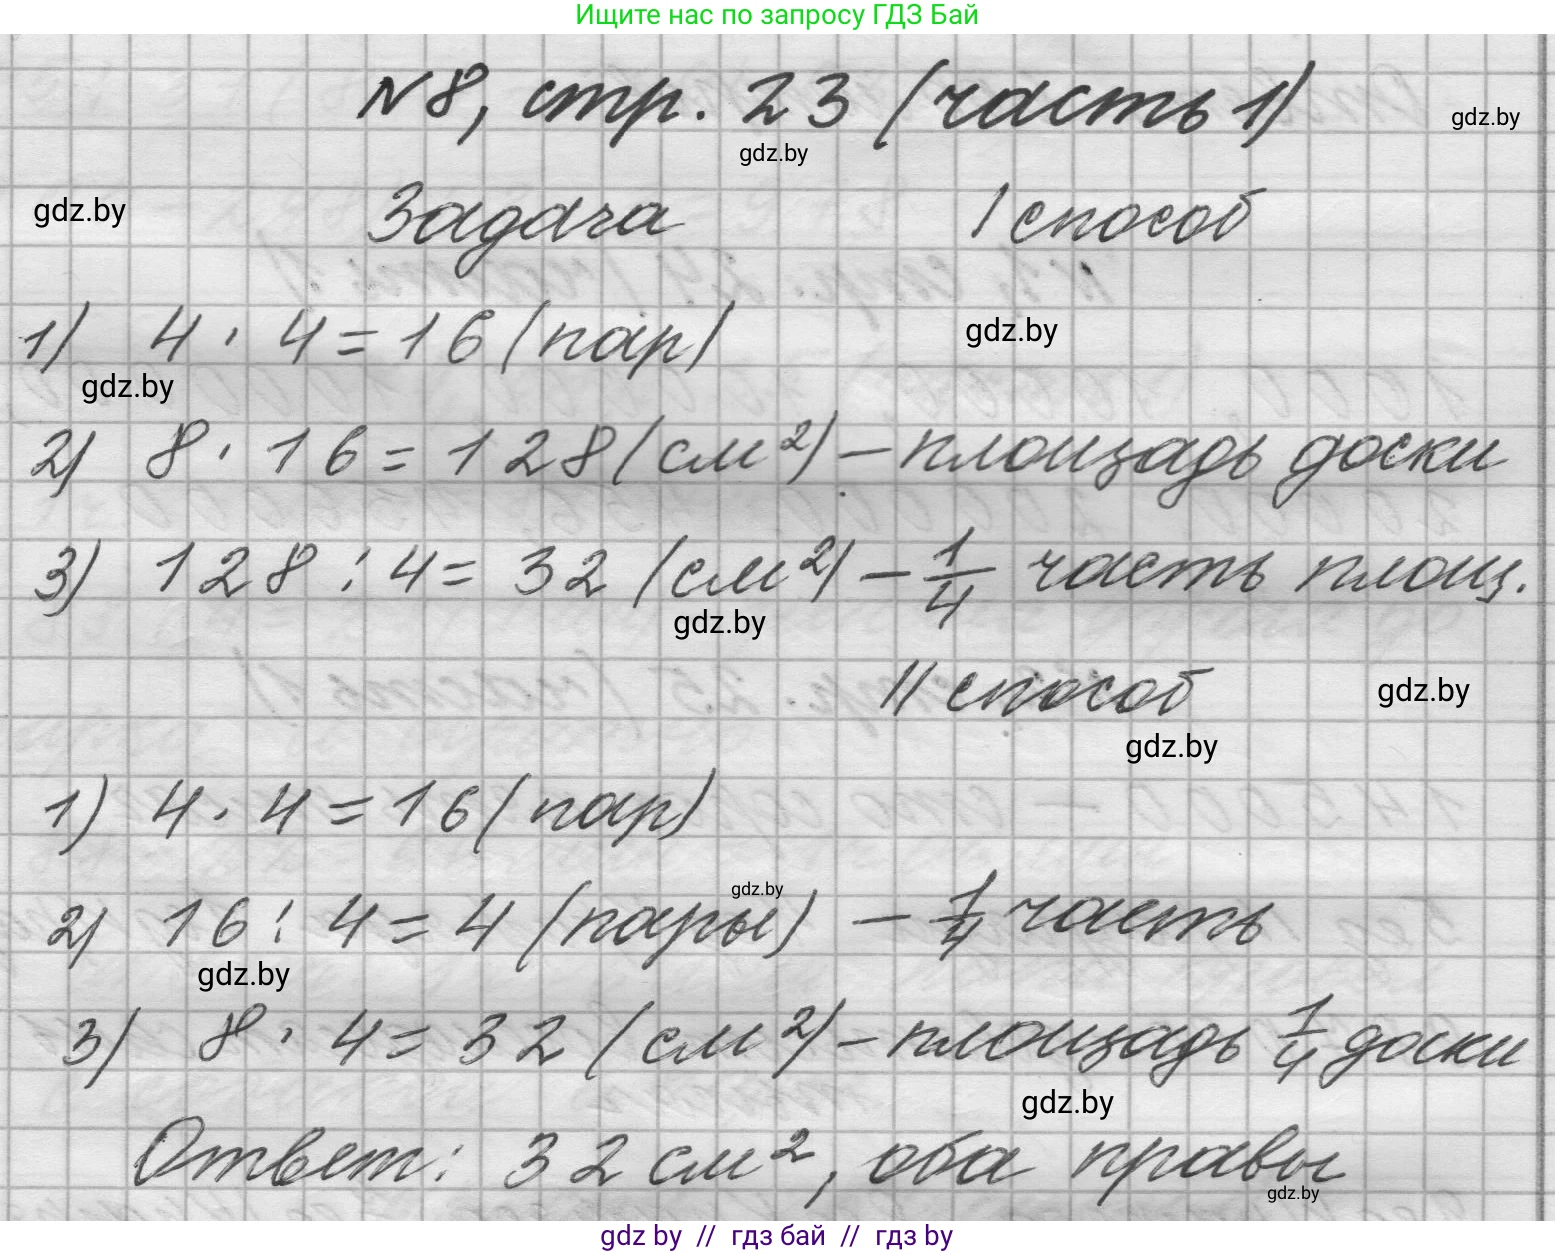 Ищите нас по запросу ГДЗ Бай
№8, стр. 23 (часть 1)
gdz.by
gdz.by
gdz.by
Задача I способ
1) 4 · 4 = 16 (пар)
gdz.by
gdz.by
2) 8 · 16 = 128 (см²) – площадь доски
3) 128 : 4 = 32 (см²) – 1/4 часть площ.
gdz.by
II способ
gdz.by
gdz.by
1) 4 · 4 = 16 (пар)
gdz.by
2) 16 : 4 = 4 (пары) – 1/4 часть
gdz.by
3) 8 · 4 = 32 (см²) – площадь 1/4 доски
gdz.by
Ответ: 32 см², оба правы
gdz.by
gdz by // гдз бай // гдз by